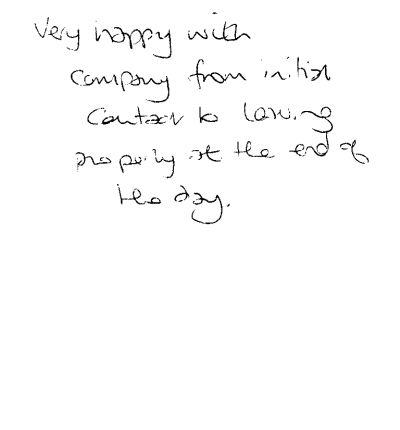 Very happy with
company from initial
contact to leaving
property at the end of
the day.